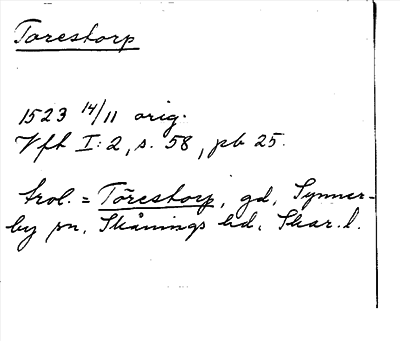 Torestorp
1523 14/11 orig.
Vft I:2, s. 58, pb 25.
trol. = Törestorp, gd, Synner-
by sn, Skånings hd, Skar. l.